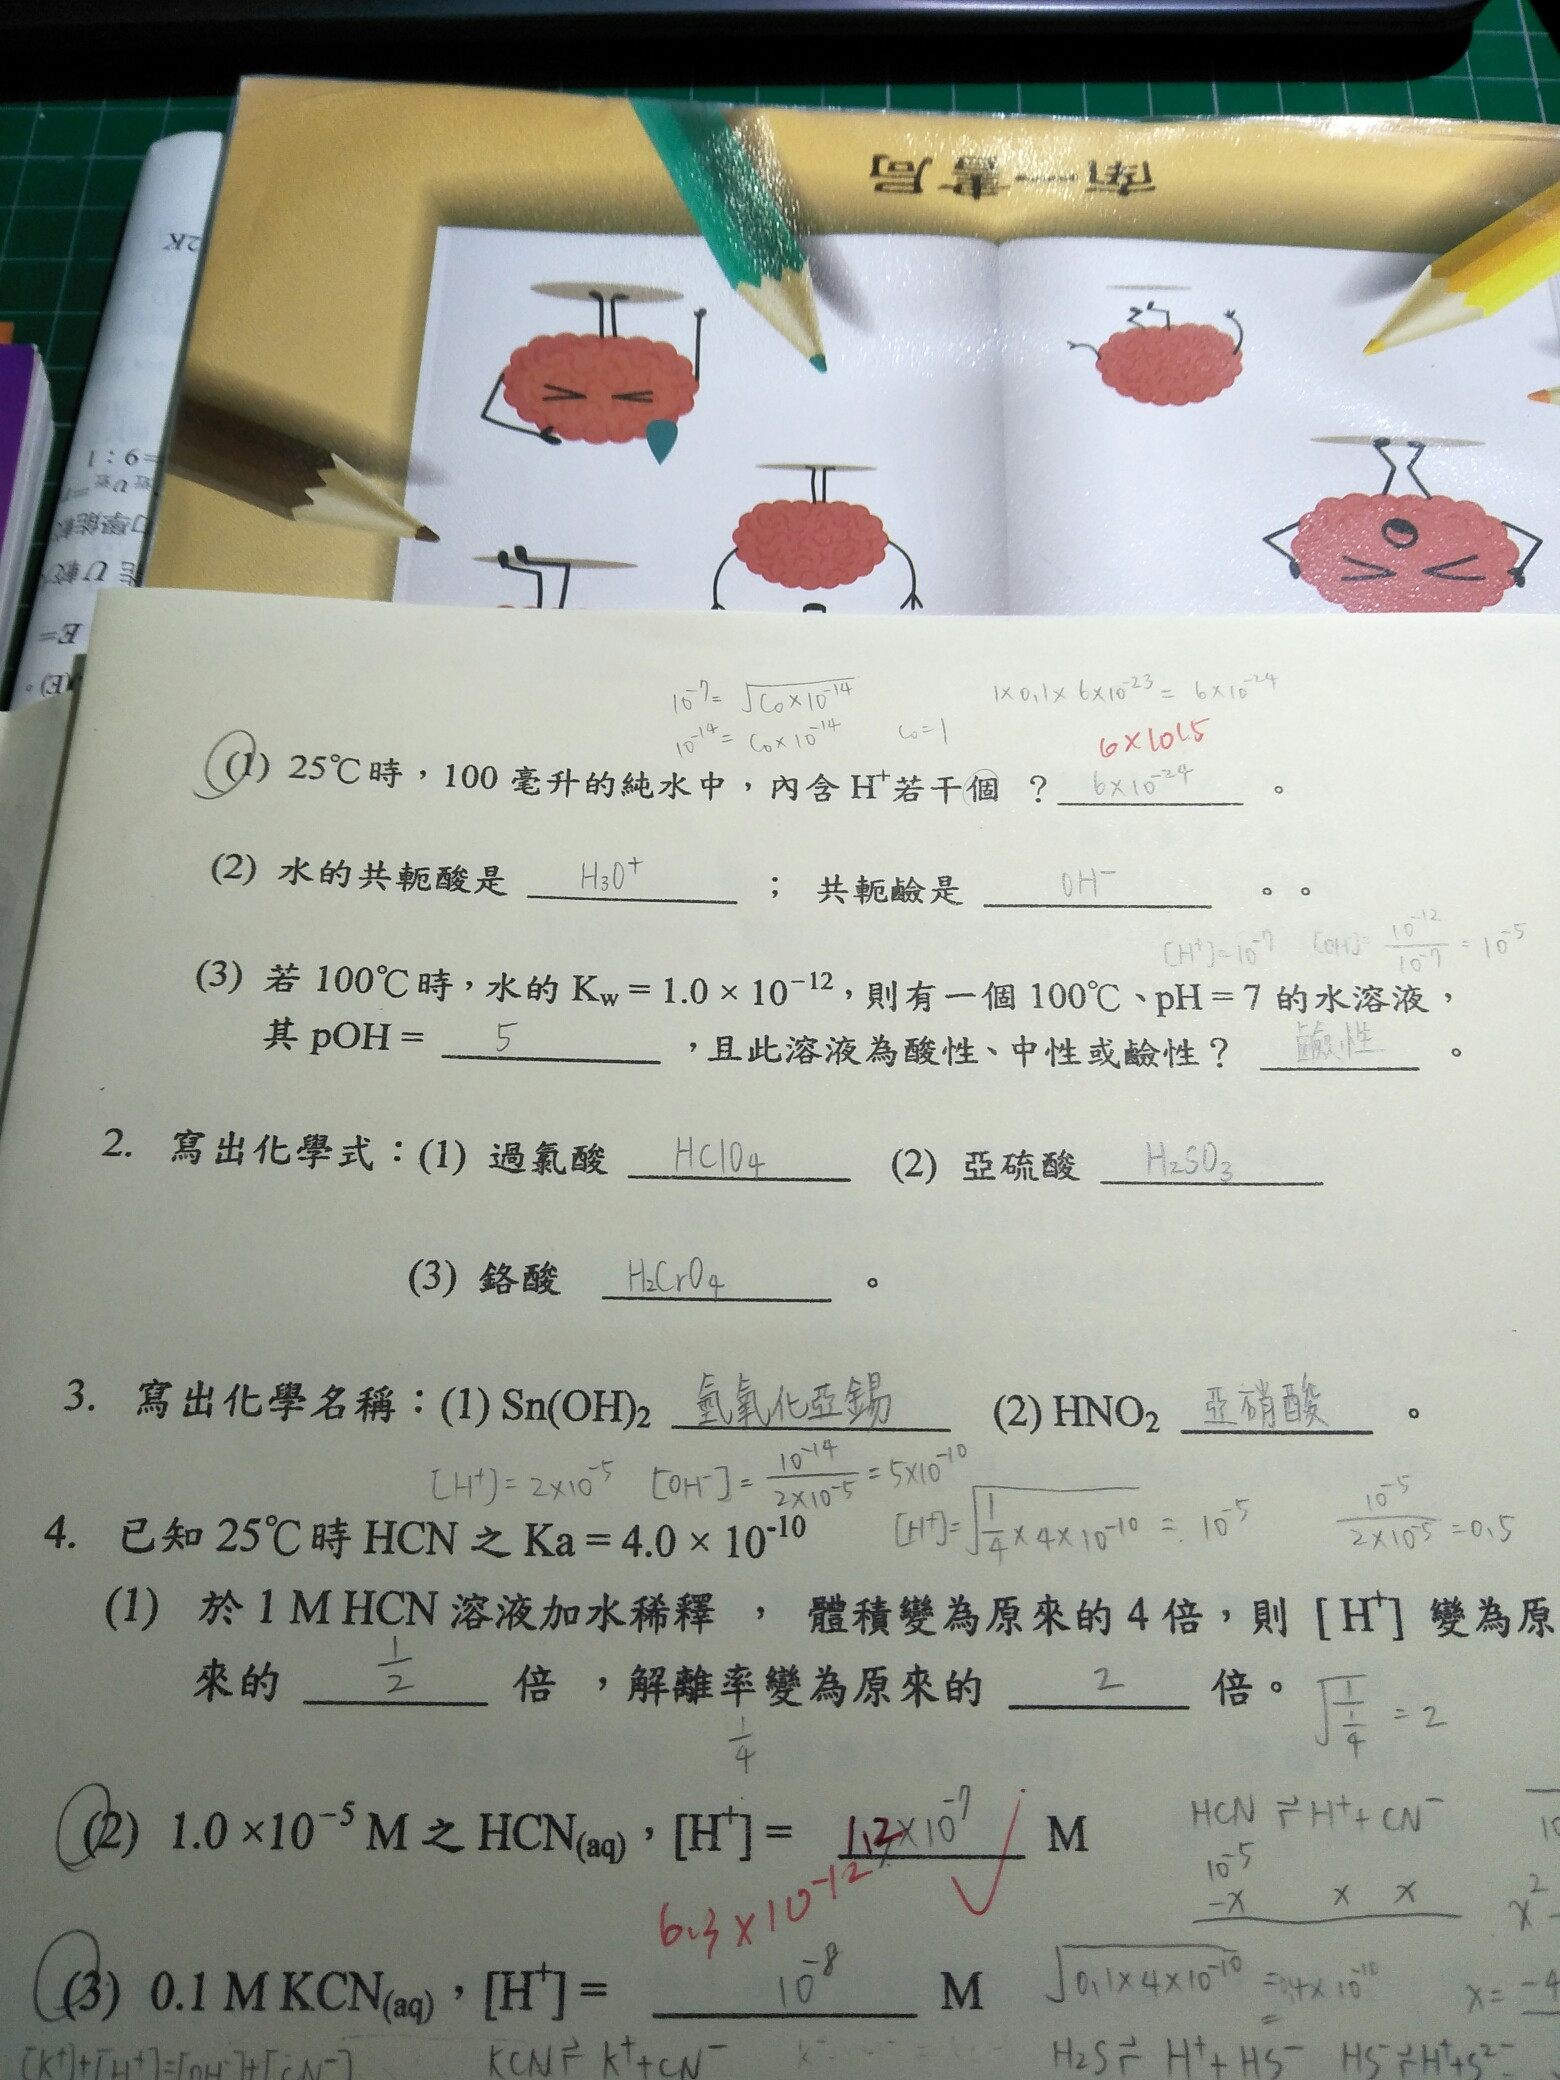 南一書局
2K
=9:1
E=
(E)。
10⁻⁷= √C₀×10⁻¹⁴
1×0.1×6×10⁻²³= 6×10⁻²⁴
10⁻¹⁴= C₀×10⁻¹⁴ C₀=1
6×1015
(1) 25℃時，100毫升的純水中，內含H⁺若干個 ? 6×10⁻²⁴ 。
(2) 水的共軛酸是 H₃O⁺ ； 共軛鹼是 OH⁻ 。。
[H⁺]=10⁻⁷ [OH]= 10⁻¹²/10⁻⁷ = 10⁻⁵
(3) 若100℃時，水的 Kw = 1.0 × 10⁻¹²，則有一個100℃、pH = 7 的水溶液，
其 pOH = 5 ，且此溶液為酸性、中性或鹼性？ 鹼性 。
2. 寫出化學式：(1) 過氯酸 HClO₄ (2) 亞硫酸 H₂SO₃
(3) 鉻酸 H₂CrO₄ 。
3. 寫出化學名稱：(1) Sn(OH)₂ 氫氧化亞錫 (2) HNO₂ 亞硝酸 。
[H⁺]= 2×10⁻⁵ [OH⁻]= 10⁻¹⁴/2×10⁻⁵ = 5×10⁻¹⁰
[H⁺]= √1/4×4×10⁻¹⁰ = 10⁻⁵ 10⁻⁵/2×10⁻⁵ =0.5
4. 已知25℃時 HCN 之 Ka = 4.0 × 10⁻¹⁰
(1) 於 1 M HCN 溶液加水稀釋 ， 體積變為原來的 4 倍，則 [H⁺] 變為原
來的 1/2 倍 ，解離率變為原來的 2 倍。
1/4
= 2
(2) 1.0 ×10⁻⁵ M 之 HCN(aq)，[H⁺] = 1.2×10⁻⁷ M
HCN ⇌ H⁺+ CN⁻
10⁻⁵
-x x x
6.3×10⁻¹²
(3) 0.1 M KCN(aq)，[H⁺] = 10⁻⁸ M
√0.1×4×10⁻¹⁰
[K⁺]+[H⁺]=[OH⁻]+[CN⁻]
KCN⇌ K⁺+CN⁻
H₂S⇌ H⁺+ HS⁻ HS⁻⇌H⁺+S²⁻